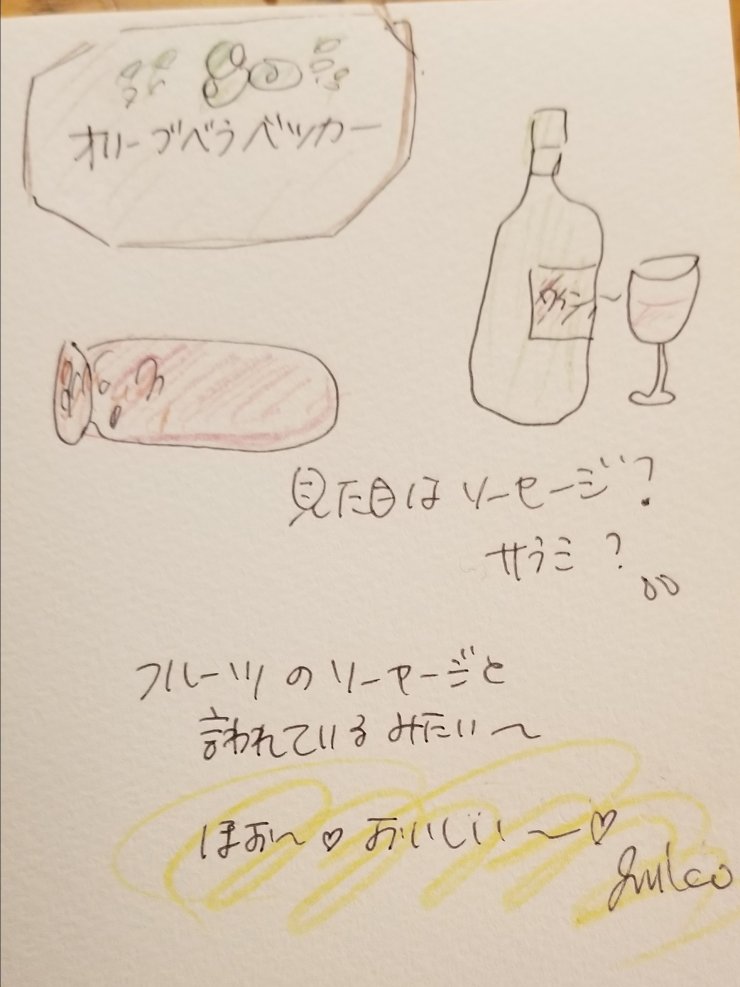 オリーブベラベッカー
ワイン
見た目はソーセージ?
サラミ?
フルーツのソーセージと
言われているみたい〜
ほお〜♡おいしい〜♡